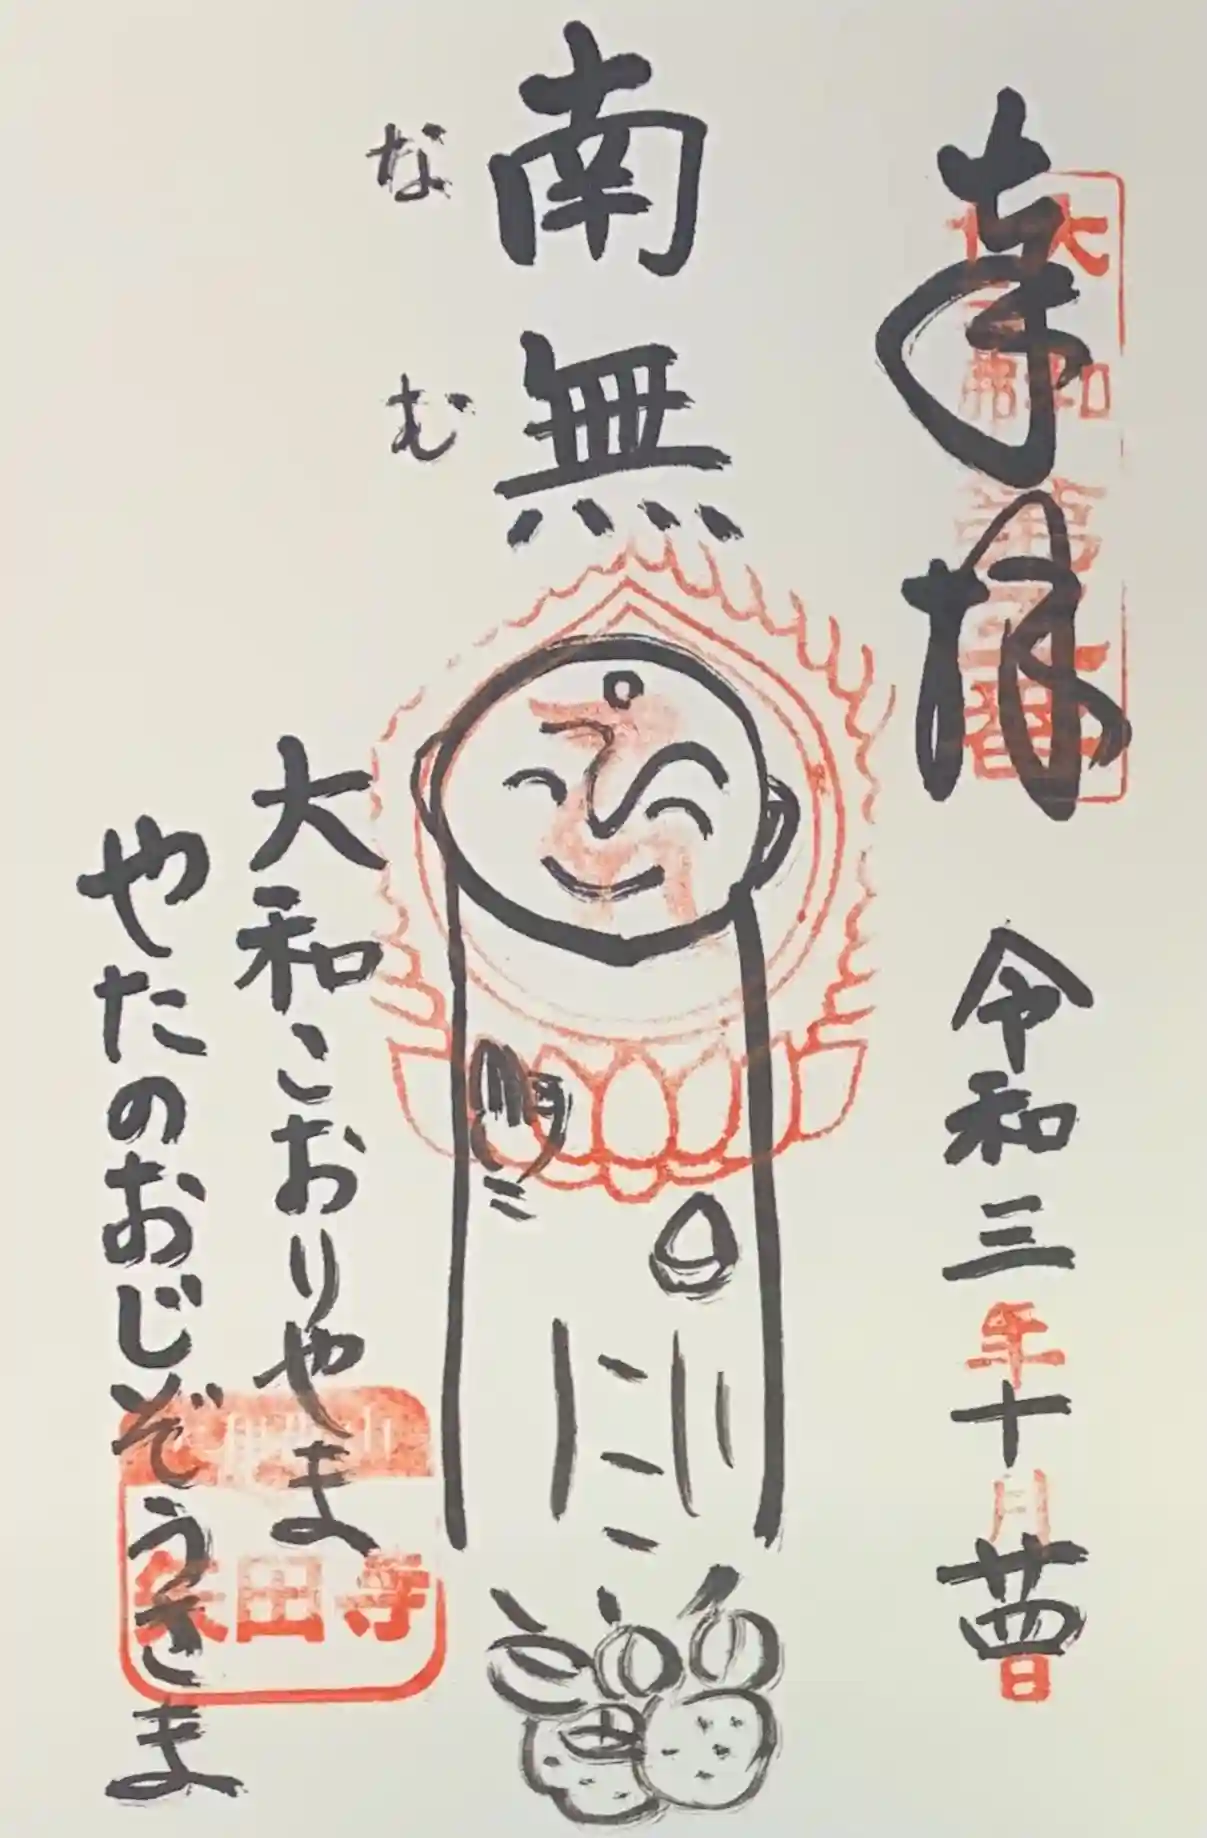 奉拝
大和
第
番
令和三年十月廿四日
南無
なむ
大和こおりやま
やたのおじぞうさま
矢田寺